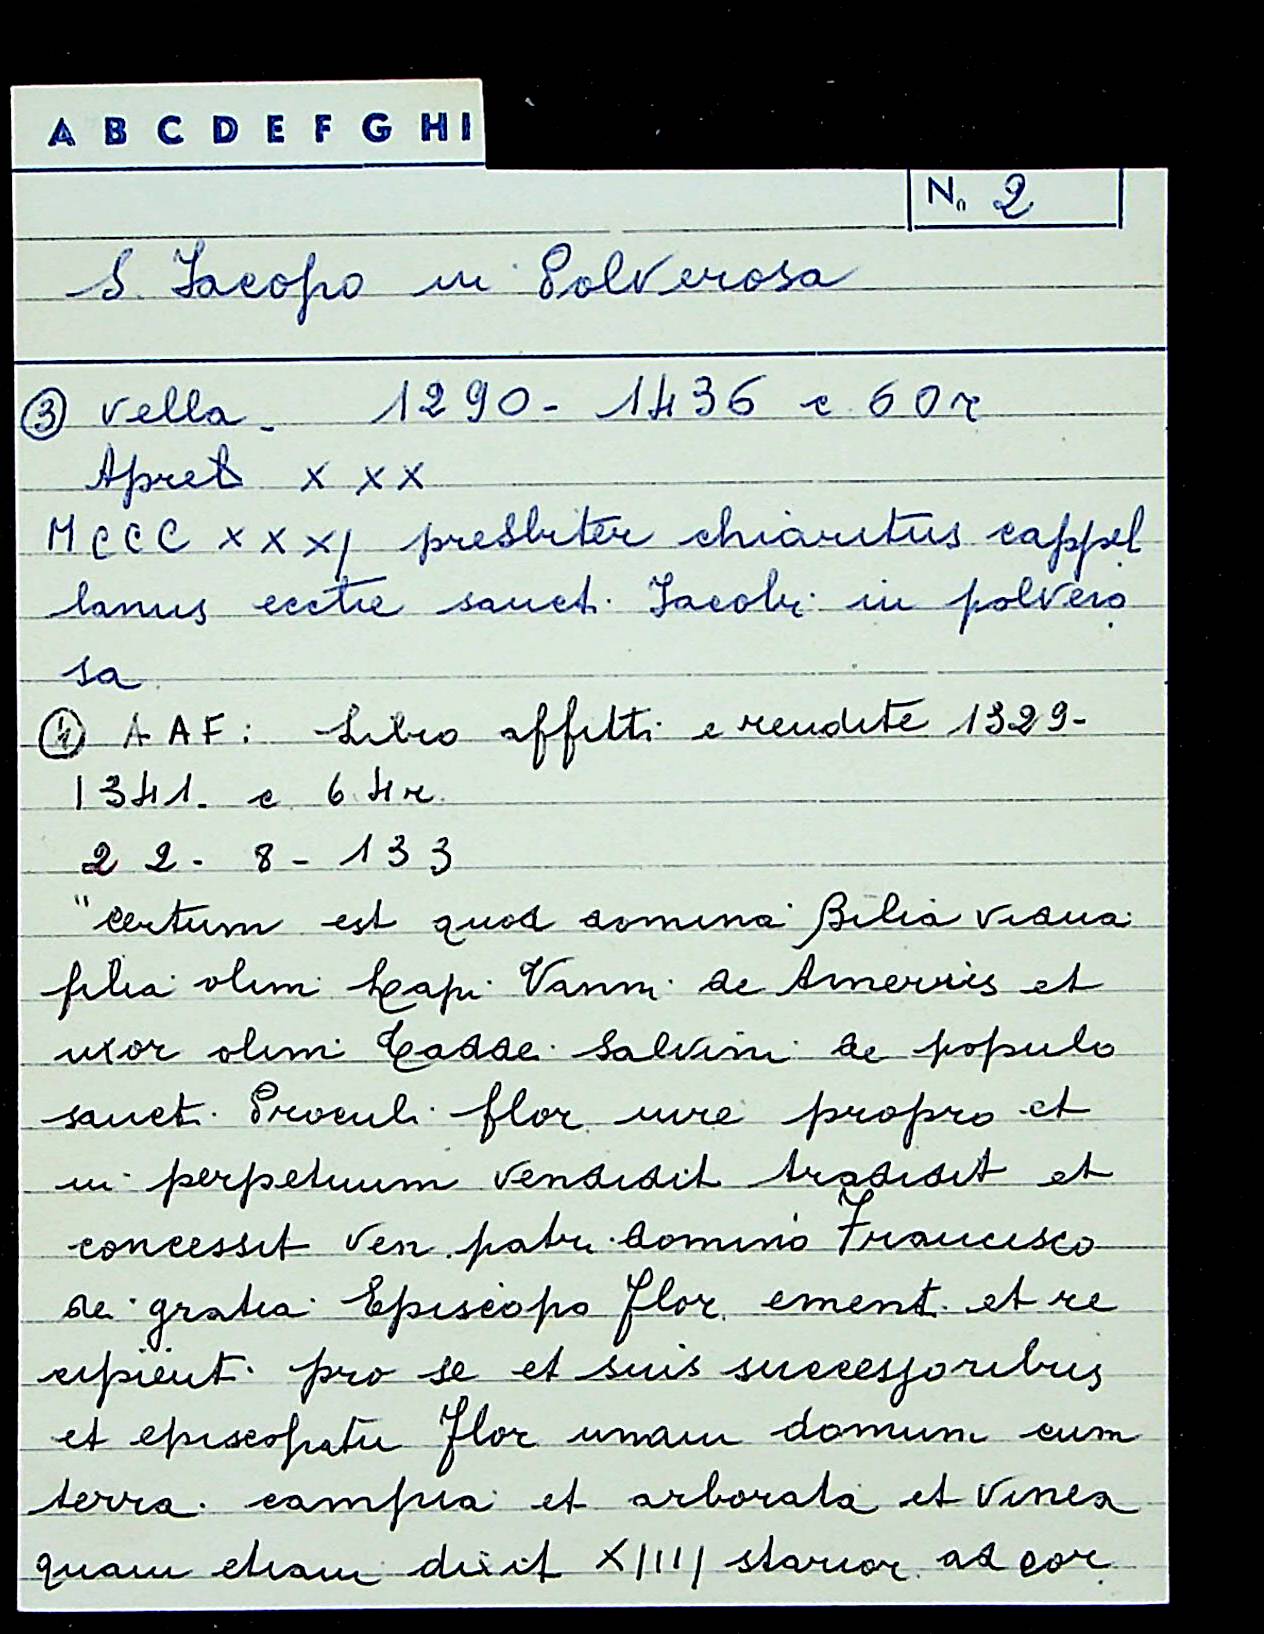 A B C D E F G H I
N. 2
S. Jacopo in Polverosa
③ vella - 1290 - 1436 c 60 r
Apret x x x
MCCC x x x / presbiter chiaritus cappel
lanus ecctie sanct. Jacobi in polvero
sa
④ A A F: Libro affitti e rendite 1329-
1341. c. 64 r.
22 - 8 - 133
"certum est quod domina Bilia vidua
filia olim Lapi Vanni de Amerriis et
uxor olim Taddei Salvini de populo
sanct. Proculi flor iure propro et
in perpetuum vendidit tradidit et
concessit ven. patri domino Francisco
dei gratia Episcopo flor. ement. et re
cipient. pro se et suis successoribus
et episcopatu flor unam domum cum
terra campia et arborata et vinea
quam etiam dixit XIIII starior ad cor